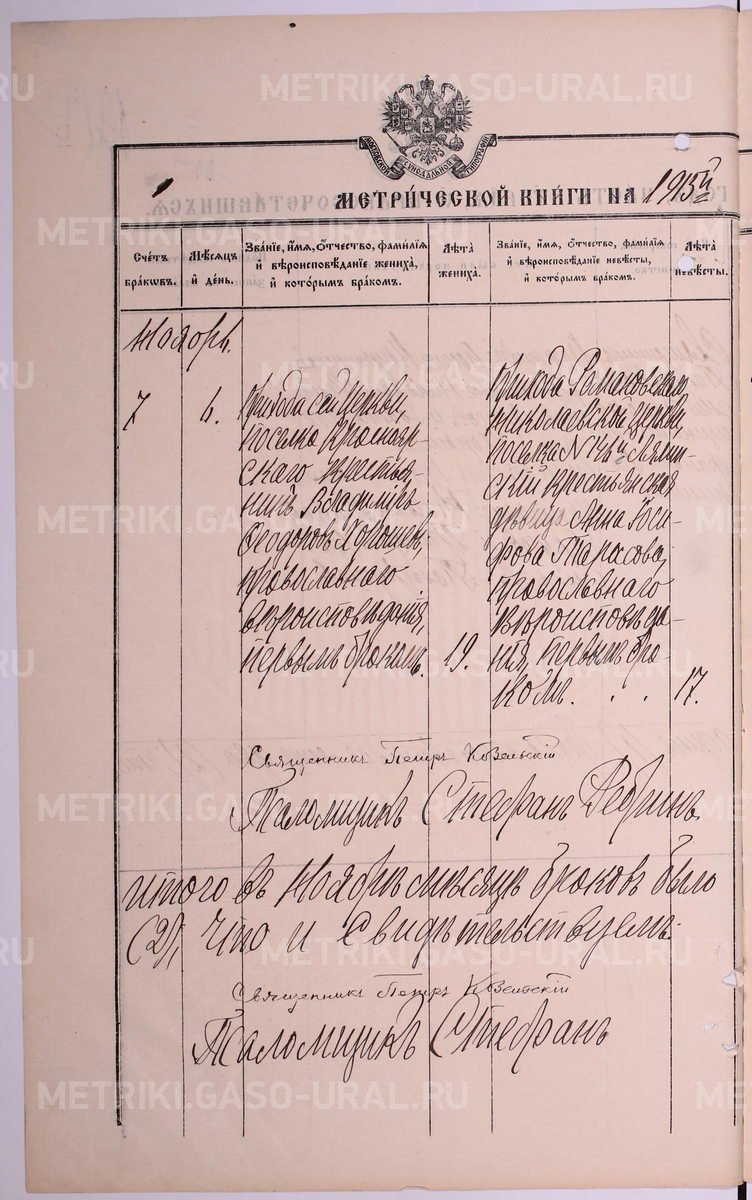 METRIKI.GASO-URAL.RU
МОСКОВСКОЙ СѴНОДАЛЬНОЙ ТИПОГРАФІИ
МЕТРИ́ЧЕСКОЙ КНИ́ГИ НА 1915й
Счетъ бра́кѡвъ.
Мѣсяцъ и́ день.
Зва́нїе, и́мѧ, о́тчество, фами́лїѧ и́ вѣроисповѣ́данїе жениха̀, и́ кото́рымъ бра́комъ.
Лѣ́та жениха.
Зва́нїе, и́мѧ, о́тчество, фами́лїѧ и́ вѣроисповѣ́данїе невѣ́сты, и́ кото́рымъ бра́комъ.
Лѣ́та невѣ́сты.
Ноябрь.
7
6.
Прихода сей церкви,
поселка Краснояр-
скаго крестья-
нинъ Владиміръ
Ѳеодоровъ Хорошев,
православнаго
вѣроисповѣданія,
первымъ бракомъ.
19.
Прихода Романовской
Николаевской церкви,
поселка N 14й Лялин-
скій крестьянская
дѣвица Анна Іоси-
фова Тарасова,
православнаго
вѣроисповѣда-
нія, первымъ бра-
комъ. . .
17.
Священникъ Петръ Козельскій
Псаломщикъ Стефанъ Ребринъ
Итого въ Ноябрѣ мѣсяцѣ браковъ было
(2), что и свидѣтельствуемъ:
Священникъ Петръ Козельскій
Псаломщикъ Стефанъ